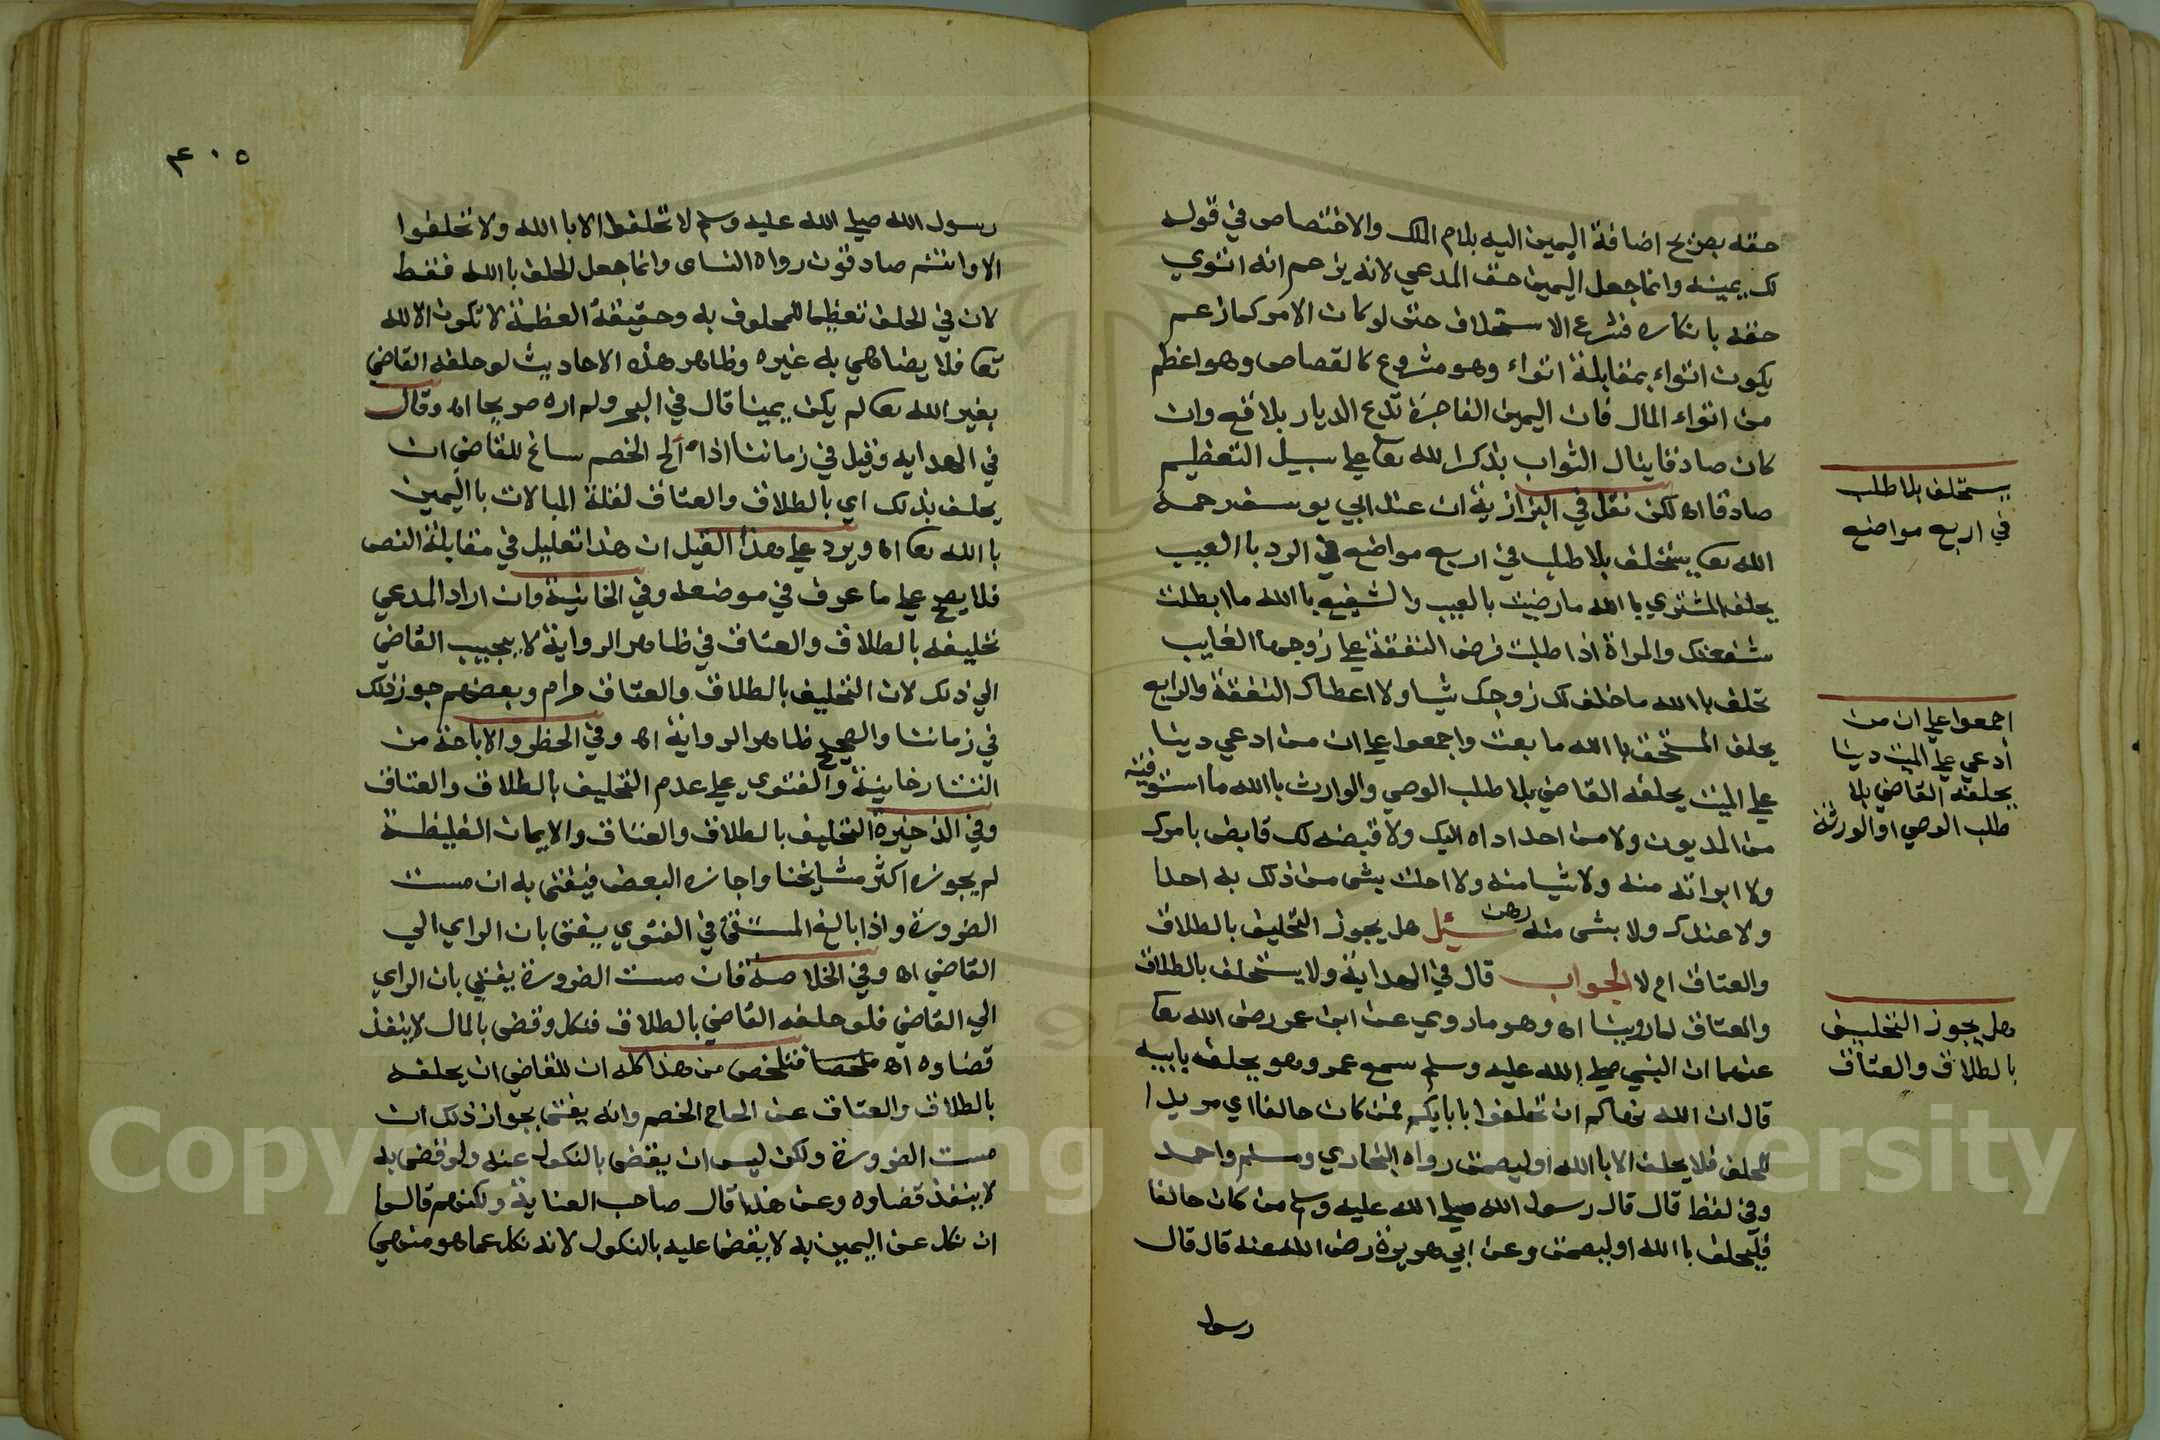 حقه بصريح اضافة اليمين اليه بلام الملك والاختصاص في قوله
لك يمينه وانما جعل اليمين حق المدعي لانه يزعم انه اتوي
حقه بانكاره فشرع الاستحلاف حتى لو كان الامر كما زعم
يكون اتواء بمقابلة اتواء وهو مشروع كالقصاص وهو اعظم
من اتواء المال فان اليمين الفاجرة تدع الديار بلاقع وان
كان صادقا ينال الثواب بذكر الله تعا على سبيل التعظيم
صادقا اه لكن نقل في البزازية ان عند ابي يوسف رحمه
الله تعا يستحلف بلا طلب في اربع مواضع في الرد با العيب
يحلف المشتري با الله ما رضيت بالعيب والشفيع با الله ما ابطلت
شفعتك والمراة اذا طلبت فرض النفقة على زوجها الغايب
تحلف با الله ما خلف لك زوجك شيا ولا اعطاك النفقة والرابع
يحلف المستحق با الله ما بعت واجمعوا على ان من ادعي دينا
على الميت يحلفه القاضي بلا طلب الوصي والوارث باالله ما استوفيته
من المديون ولا من احد اداه اليك ولا قبضه لك قابض بامرك
ولا ابراته منه ولا شيا منه ولا احلت بشى من ذلك به احدا
ولا عندك ولا بشى منه رهن سئل هل يجوز التحليف بالطلاق
والعتاق ام لا الجواب قال في الهداية ولا يستحلف بالطلاق
والعتاق لما روينا اه وهو ما روي عن ابن عمر رضى الله تعا
عنهما ان النبي صلى الله عليه وسلم سمع عمر وهو يحلف بابيه
قال ان الله ينهاكم ان تحلفوا بابايكم فمن كان حالفا اي مريدا
للحلف فلا يحلف الا با الله او ليصمت رواه البخاري ومسلم واحمد
وفي لفظ قال قال رسول الله صلى الله عليه وسلم من كان حالفا
فليحلف با الله او ليصمت وعن ابي هريرة رضى الله عنه قال قال
رسول
يستحلف بلا طلب
في اربع مواضع
اجمعوا على ان من
أدعي على الميت دينا
يحلفه القاضي بلا
طلب الوصي او الورثة
وهل يجوز التحليف
بالطلاق والعتاق
٤٠٥
رسول الله صلى الله عليه وسلم لا تحلفوا الا با الله ولا تحلفوا
الا وانتم صادقون رواه النساى وانما جعل الحلف با الله فقط
لان في الحلف تعظيما للمحلوف به وحقيقة العظمة لا تكون الا لله
تعا فلا يضاهي به غيره وظاهر هذه الاحاديث لو حلفه القاضي
بغير الله تعا لم يكن يمينا قال في البحر ولم اره صريحا اه وقال
في الهدايه وقيل في زماننا اذا الح الخصم ساغ للقاضي ان
يحلف بذلك اي بالطلاق والعتاق لقلة المبالات با اليمين
با الله تعا اه ويرد على هذا القيل ان هذا تعليل في مقابلة النص
فلا يصح على ما عرف في موضعه وفي الخانية وان اراد المدعي
تحليفه بالطلاق والعتاق في ظاهر الرواية لا يجيب القاضي
الي ذلك لان التحليف بالطلاق والعتاق حرام وبعضهم جوز ذلك
في زماننا والصحيح ظاهر الرواية اه وفي الحظر والاباحة من
التتارخانية والفتوى على عدم التحليف بالطلاق والعتاق
وفي الذخيرة التحليف بالطلاق والعتاق والايمان الغليظة
لم يجوزه اكثر مشايخنا واجازه البعض فيفتى به ان مست
الضرورة واذا بالغ المستفتى في الفتوي يفتى بان الراي الي
القاضي اه وفي الخلاصة فان مست الضرورة يفتي بان الراي
الي القاضي فلو حلفه القاضي بالطلاق فنكل وقضى بالمال لا ينفذ
قضاوه اه ملخصا فتلخص من هذا كله ان للقاضي ان يحلفه
بالطلاق والعتاق عن الحاح الخصم وانه يفتى بجواز ذلك ان
مست الضرورة ولكن ليس ان يقضى بالنكول عنه ولو قضى به
لا ينفذ قضاوه وعن هذا قال صاحب العناية ولكنهم قالوا
ان نكل عن اليمين به لا يقضا عليه بالنكول لانه نكل عما هو منهي